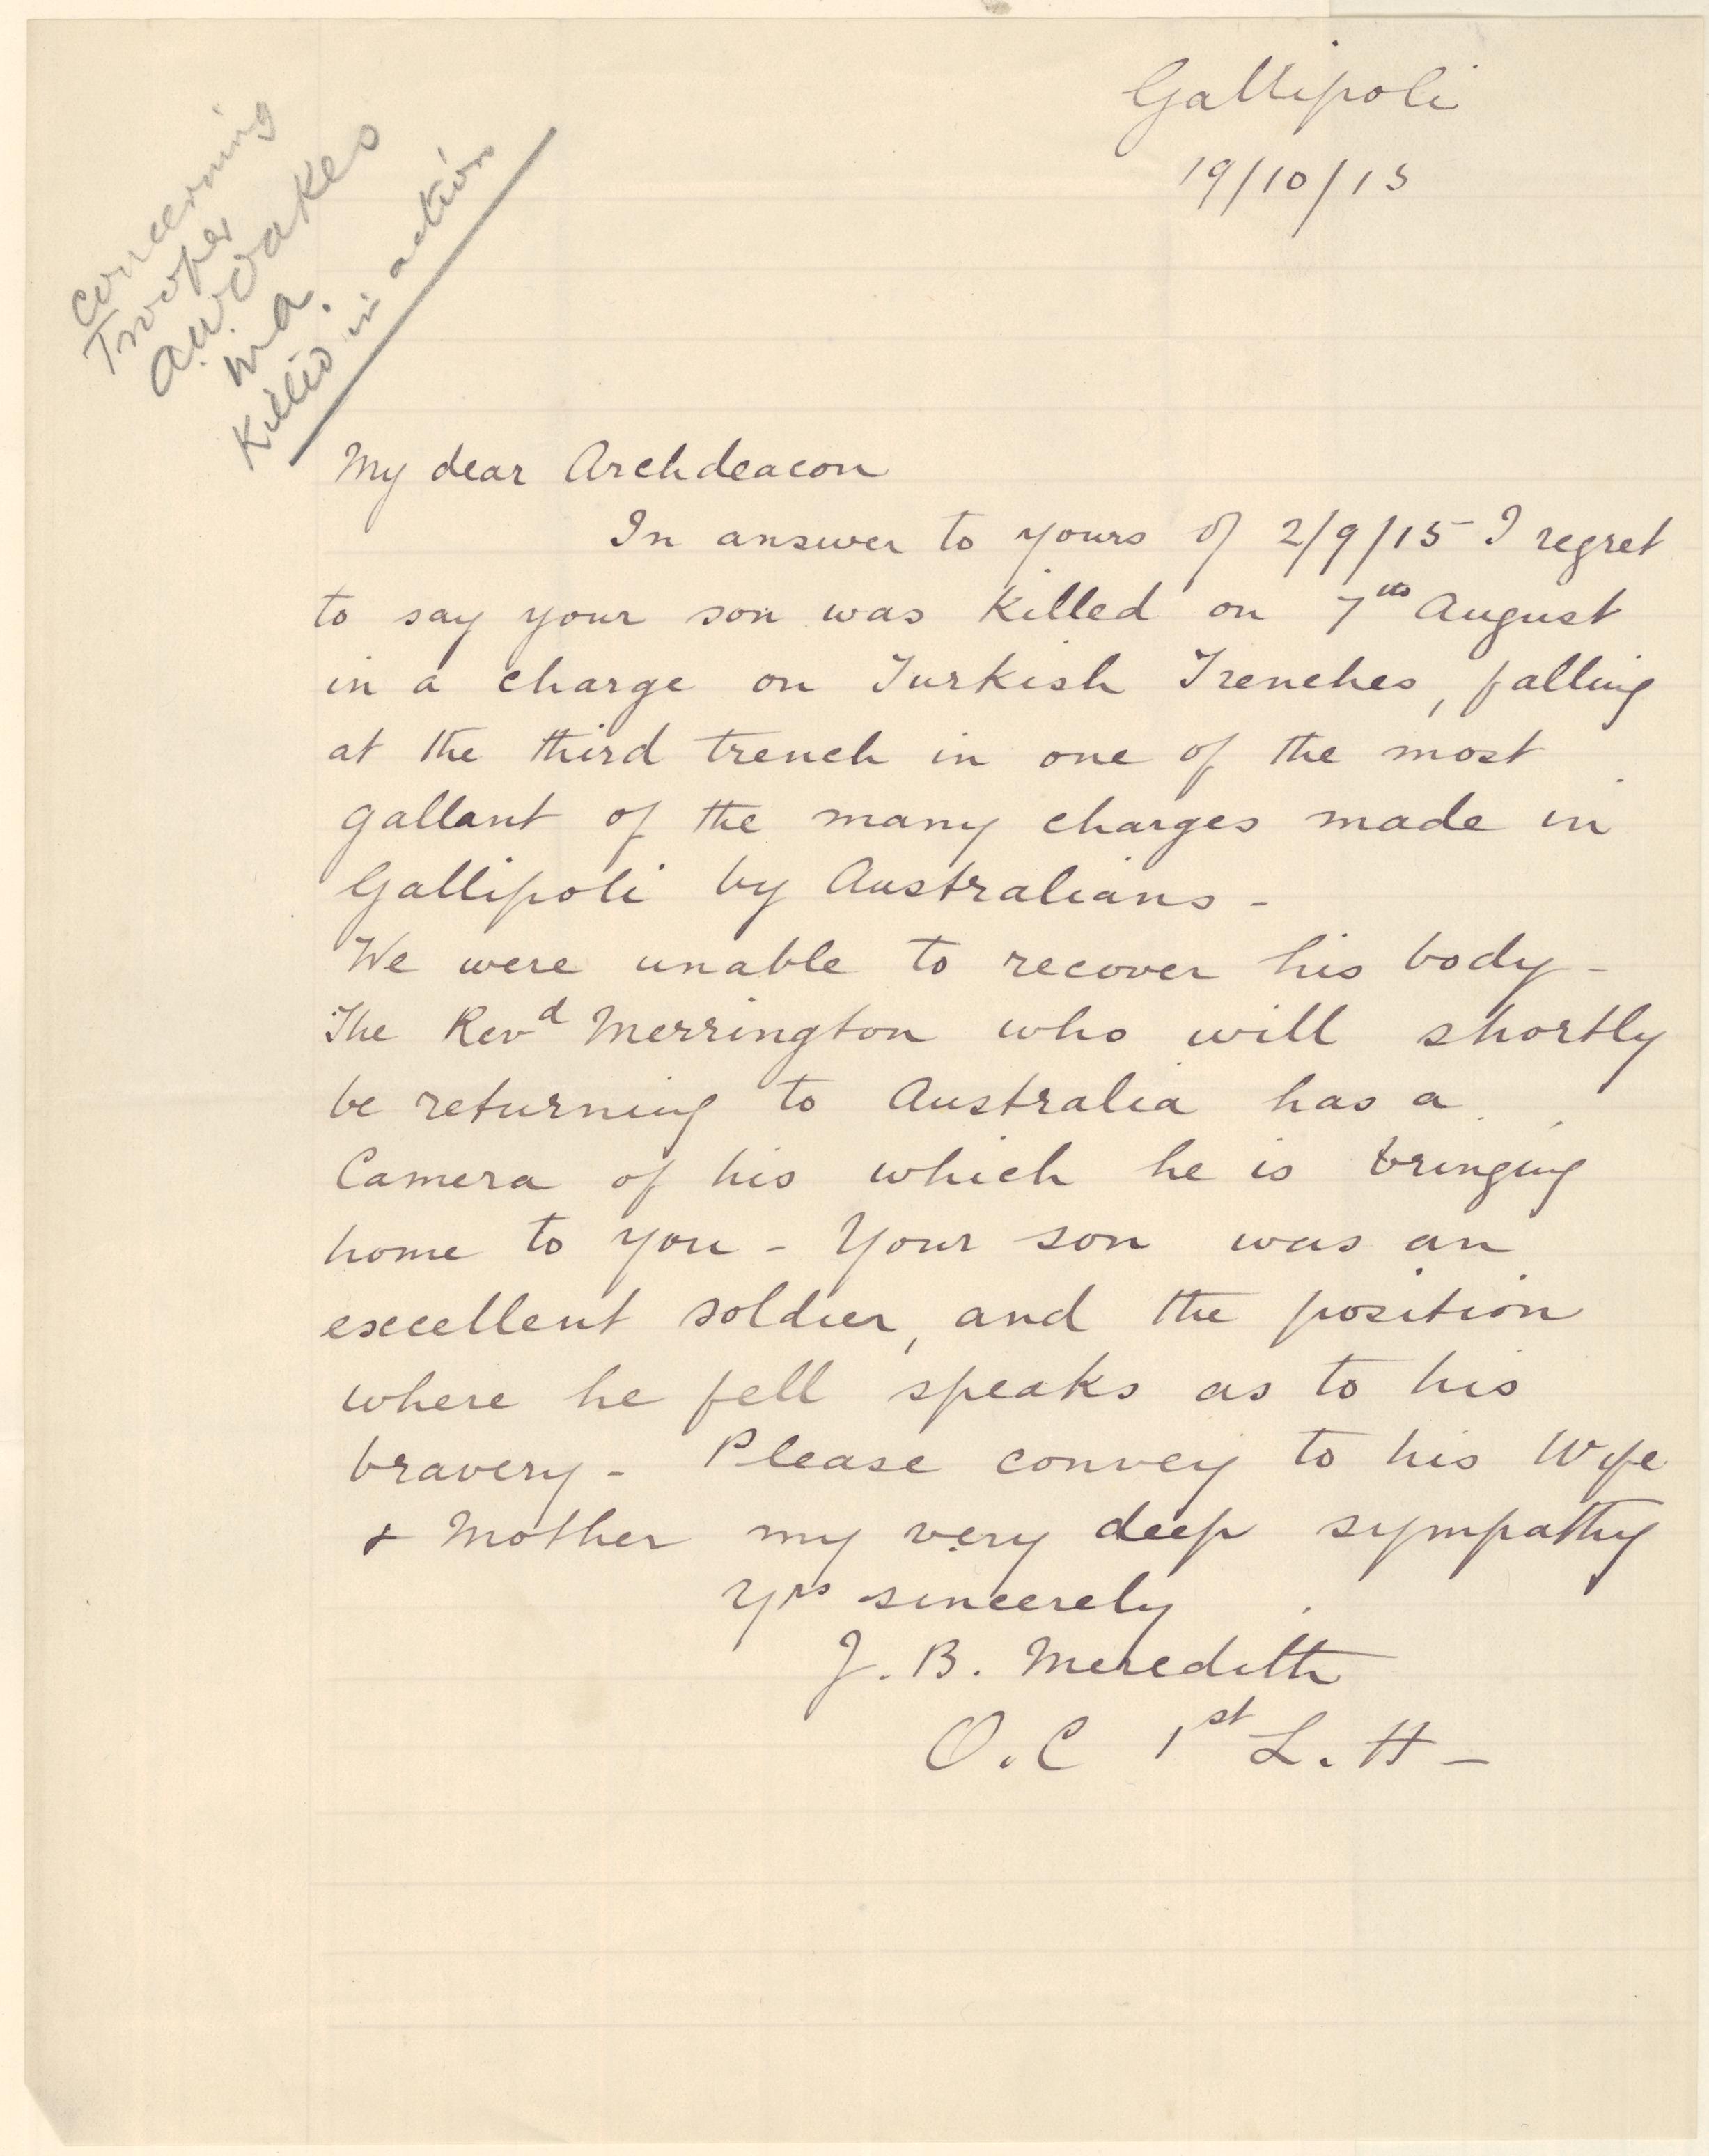 Gallipoli
19/10/15
concerning
Trooper
A.W. Oakes
M.A.
Killed in action
My dear Archdeacon
In answer to yours of 2/9/15 I regret
to say your son was killed on 7th August
in a charge on Turkish Trenches, falling
at the third trench in one of the most
gallant of the many charges made in
Gallipoli by Australians -
We were unable to recover his body -
The Revd Merrington who will shortly
be returning to Australia has a
Camera of his which he is bringing
home to you - Your son was an
excellent soldier, and the position
where he fell speaks as to his
bravery - Please convey to his Wife
& Mother my very deep sympathy
Yrs sincerely
J. B. Meredith
O.C 1st L. H -